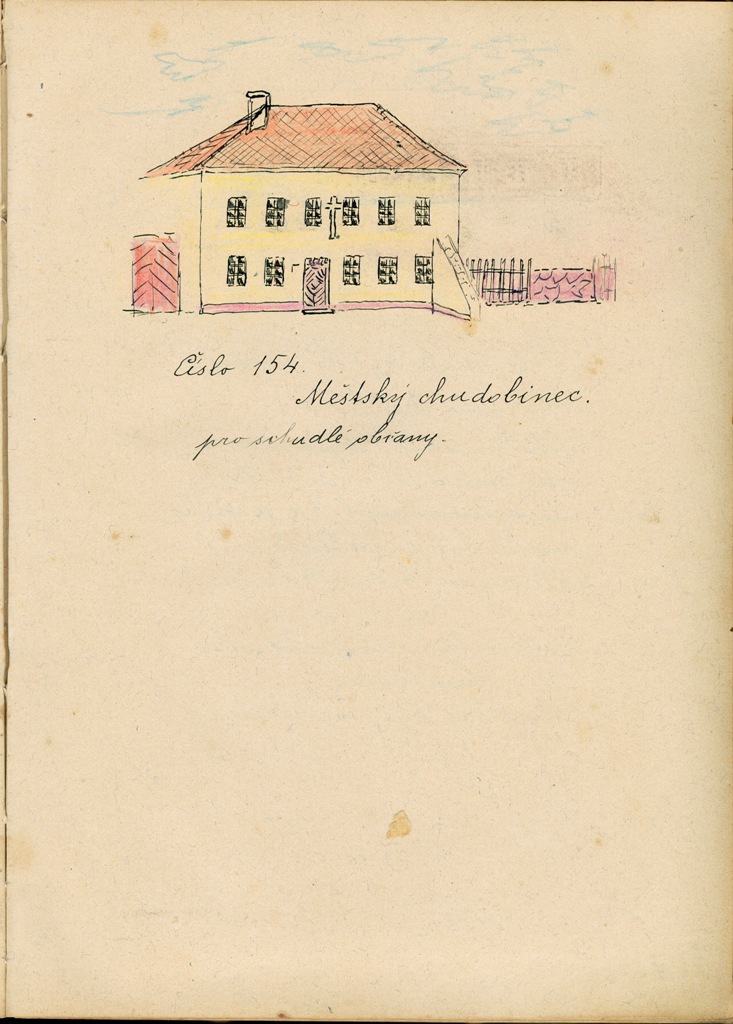 Číslo 154.
Městský chudobinec.
pro schudlé občany.